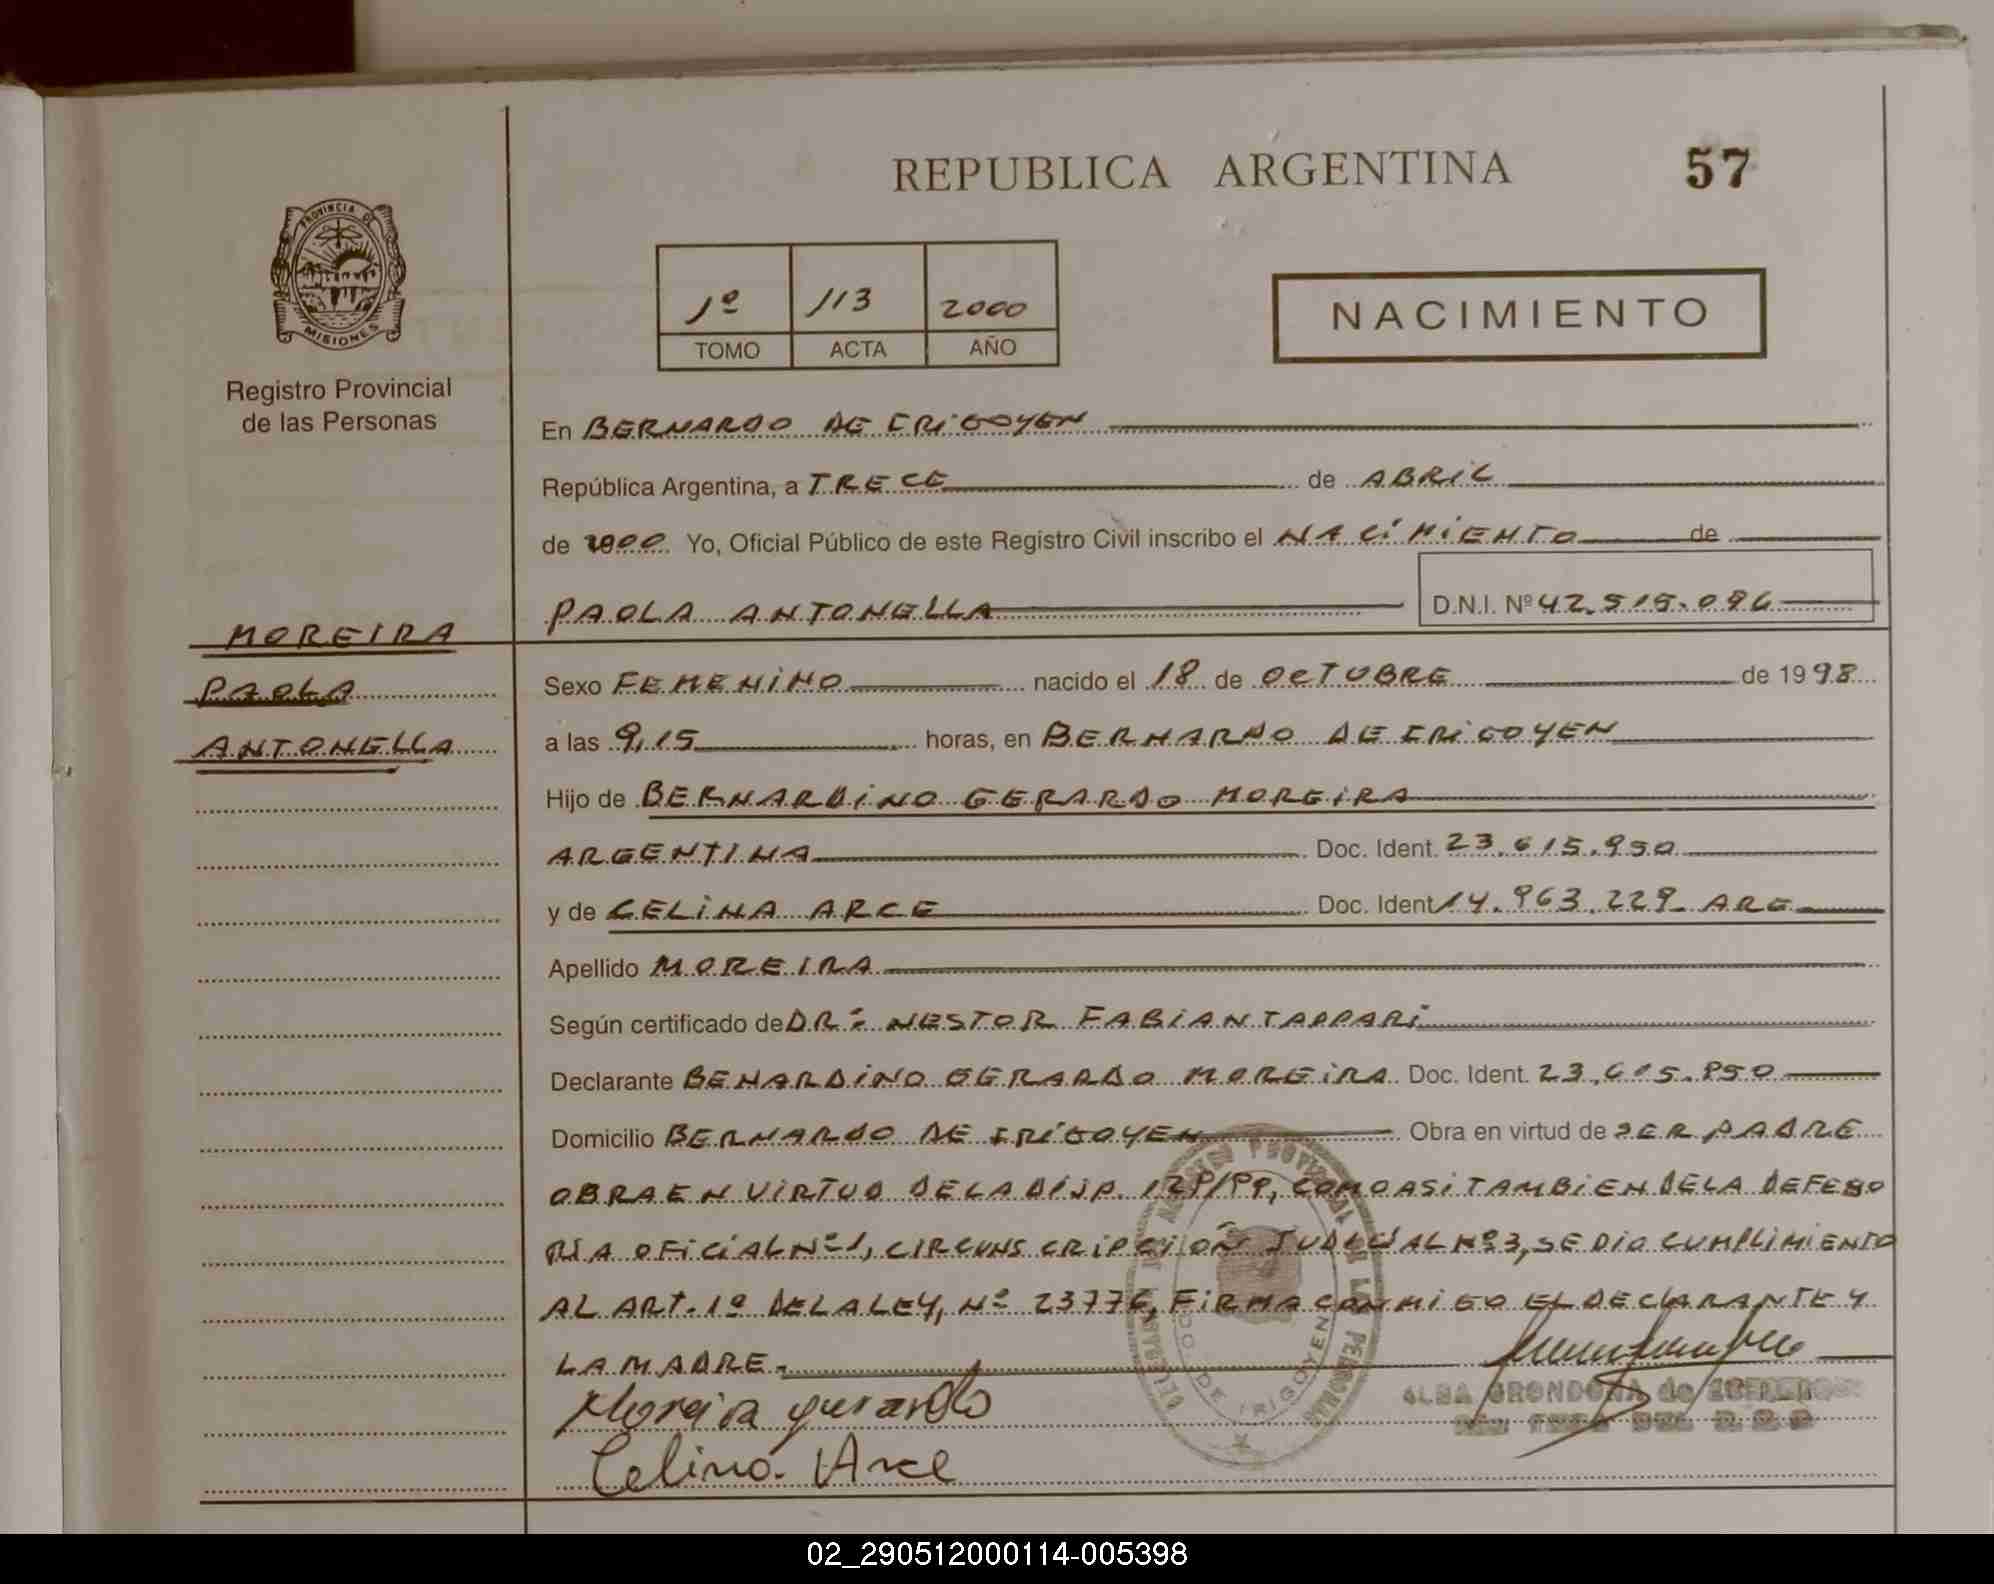 REPUBLICA ARGENTINA
57
PROVINCIA DE
MISIONES
Registro Provincial
de las Personas
1º 113 2000
TOMO ACTA AÑO
NACIMIENTO
En BERNARDO DE IRIGOYEN
República Argentina, a TRECE de ABRIL
de 2000 Yo, Oficial Público de este Registro Civil inscribo el NACIMIENTO de
PAOLA ANTONELLA D.N.I. Nº 42.515.096
MOREIRA
PAOLA
ANTONELLA
Sexo FEMENINO nacido el 18 de OCTUBRE de 1998
a las 9,15 horas, en BERNARDO DE IRIGOYEN
Hijo de BERNARDINO GERARDO MOREIRA
ARGENTINA Doc. Ident. 23.615.950
y de CELINA ARCE Doc. Ident 14.963.229 ARG
Apellido MOREIRA
Según certificado de DR: NESTOR FABIAN TAPPARI
Declarante BENARDINO GERARDO MOREIRA Doc. Ident. 23.615.950
Domicilio BERNARDO DE IRIGOYEN Obra en virtud de SER PADRE
OBRA EN VIRTUD DE LA DISP. 129/99, COMO ASI TAMBIEN DE LA DEFENSO
RIA OFICIAL Nº 1, CIRCUNSCRIPCIÓN JUDICIAL Nº 3, SE DIO CUMPLIMIENTO
AL ART. 1º DE LA LEY, Nº 23776, FIRMA CONMIGO EL DECLARANTE Y
LA MADRE.-
Moreira Gerardo
ALBA GRONDONA de
Celina Arce
DE IRIGOYEN
02_290512000114-005398